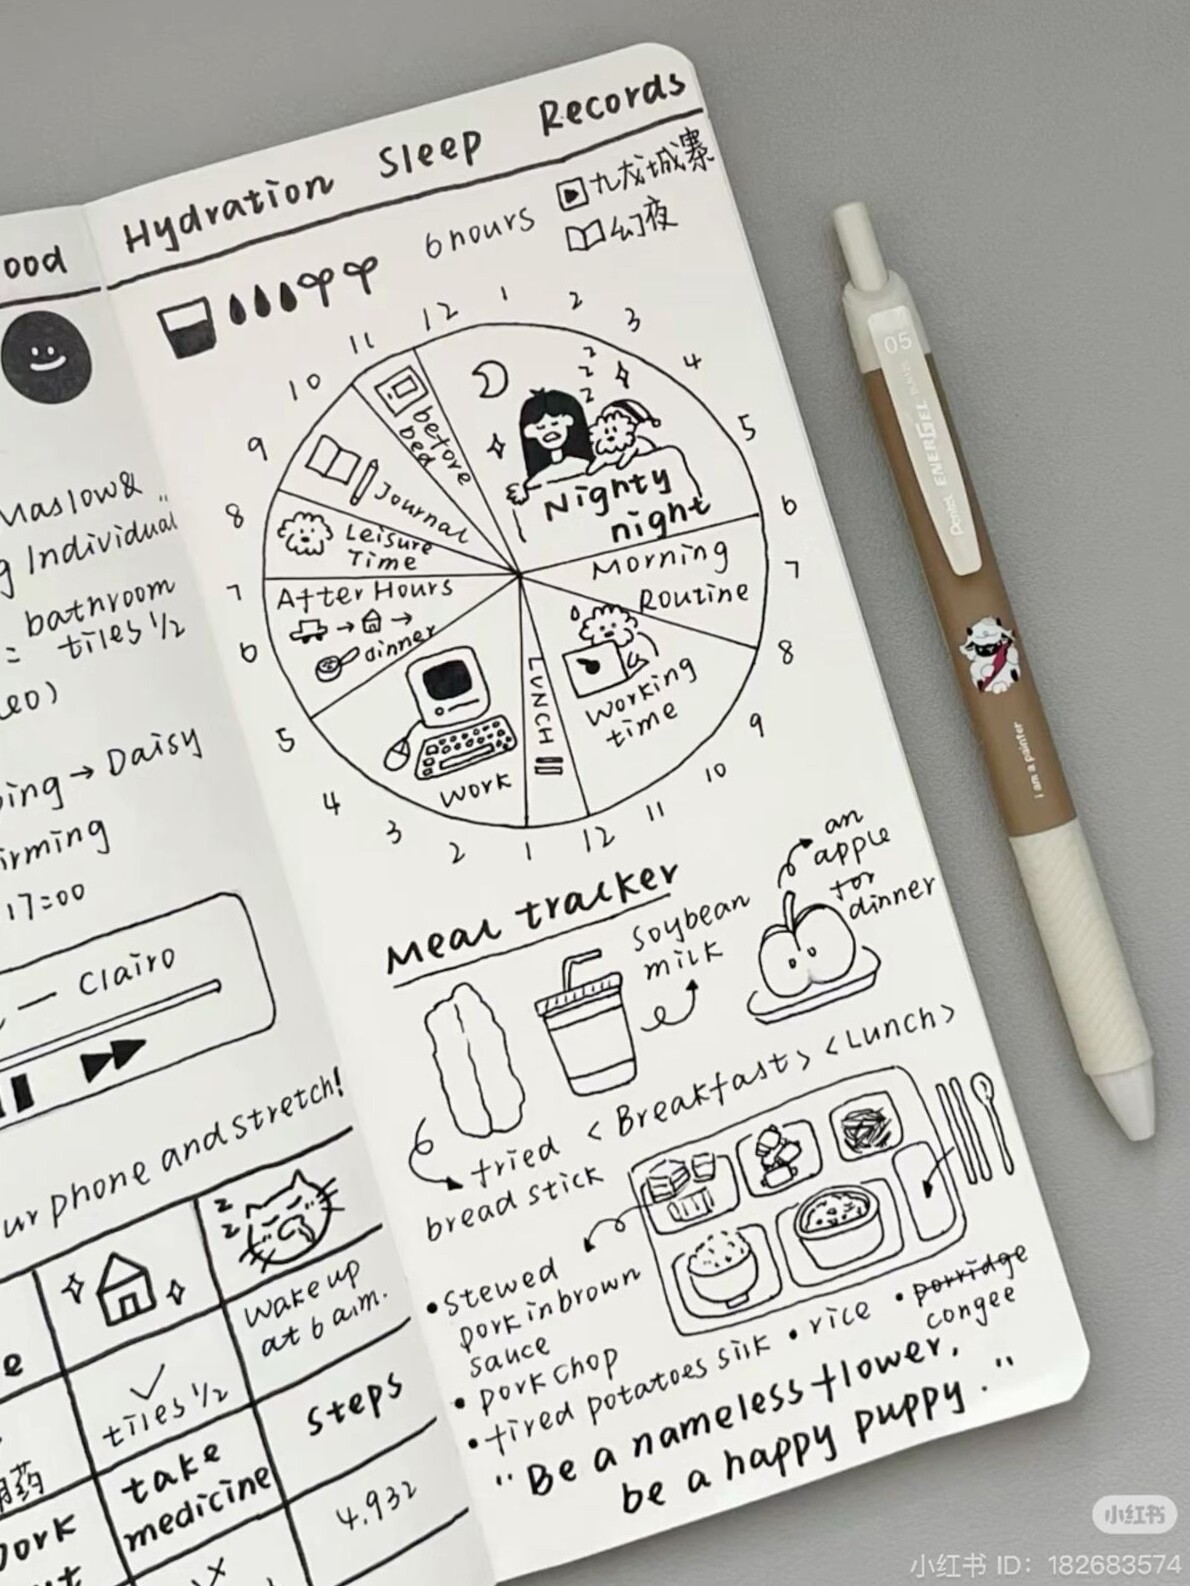 ood
Maslow&
g Individual"
= bathroom
tiles 1/2
eo)
ing → Daisy
irming
17:00
— Clairo
ur phone and stretch!
z
z
wake up
at 6 a.m.
e
tiles 1/2
steps
药
take
medicine
4.932
work
Hydration Sleep Records
6 hours
九龙城寨
幻夜
12 1 2 3 4 5 6 7 8 9 10 11 12 1 2 3 4 5 6 7 8 9 10 11
z
z
z
Nighty
night
Morning
Routine
Working
time
LUNCH
work
After Hours
→ →
dinner
Leisure
Time
Journal
before
bed
Meal tracker
soybean
milk
an
apple
for
dinner
<Breakfast> <Lunch>
fried
bread stick
• stewed
pork in brown
sauce
• pork chop
• fired potatoes silk • rice • porridge
congee
"Be a nameless flower,
be a happy puppy."
05
Pentel ENERGEL
I am a painter
小红书
小红书 ID: 182683574